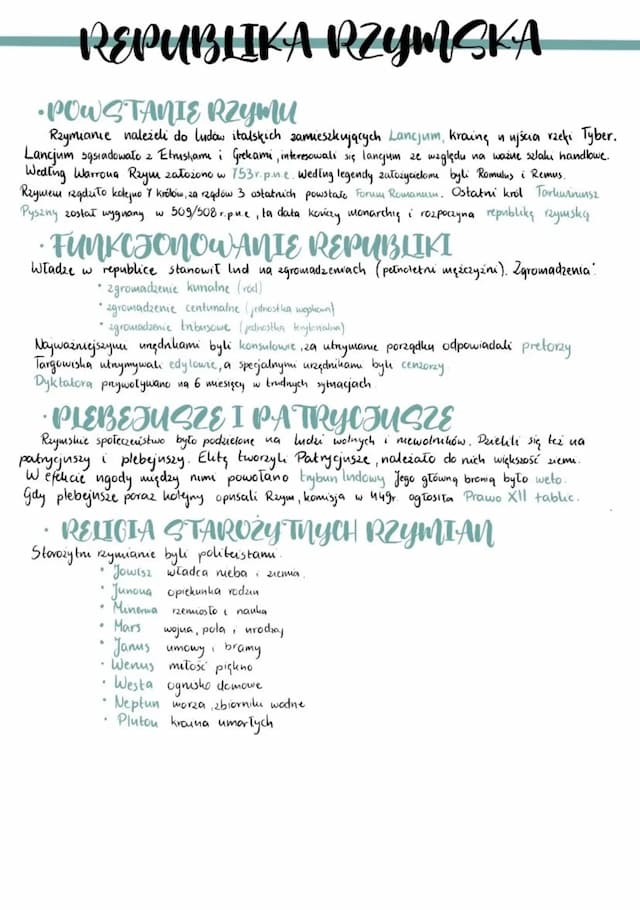 REPUBLIKA RZYMSKA
• POWSTANIE RZYMU
Rzymianie należeli do ludów italskich zamieszkujących Lancjum, krainę u ujścia rzeki Tyber.
Lancjum sąsiadowało z Etruskami i Grekami, interesowali się lancjum ze względu na ważne szlaki handlowe.
Według Warrona Rzym założono w 753 r.p.n.e. Według legendy założycielami byli Romulus i Remus.
Rzymem rządziło kolejno 7 królów, za rządów 3 ostatnich powstało Forum Romanum. Ostatni król Tarkwiniusz
Pyszny został wygnany w 509/508 r.p.n.e, ta data kończy monarchię i rozpoczyna republikę rzymską
• FUNKCJONOWANIE REPUBLIKI
Władzę w republice stanowił lud na zgromadzeniach (pełnoletni mężczyźni). Zgromadzenia:
• zgromadzenie kurialne (ród)
• zgromadzenie centurialne (jednostka wojskowa)
• zgromadzenie tribusowe (jednostka terytorialna)
Najważniejszymi urzędnikami byli konsulowie, za utrzymanie porządku odpowiadali pretorzy
Targowiska utrzymywali edylowie, a specjalnymi urzędnikami byli cenzorzy.
Dyktatora przywoływano na 6 miesięcy w trudnych sytuacjach
• PLEBEJUSZE I PATRYCJUSZE
Rzymskie społeczeństwo było podzielone na ludzi wolnych i niewolników. Dzielili się też na
patrycjuszy i plebejuszy. Elitę tworzyli Patrycjusze, należało do nich większość ziemi.
W efekcie ugody między nimi powołano trybun ludowy Jego główną bronią było weto.
Gdy plebejusze poraz kolejny opuścili Rzym, komisja w 449r. ogłosiła Prawo XII tablic.
• RELIGIA STAROŻYTNYCH RZYMIAN
Starożytni rzymianie byli politeistami.
• Jowisz władca nieba i ziemia.
• Junona opiekunka rodzin
• Minerwa rzemiosło i nauka
• Mars wojna, pola i urodzaj
• Janus umowy i bramy
• Wenus miłość piękno
• Westa ognisko domowe
• Neptun morza, zbiorniki wodne
• Pluton kraina umarłych